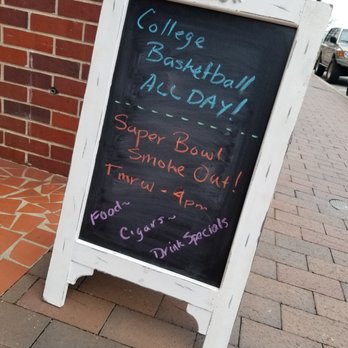 College
Basketball
ALL DAY!
Super Bowl
Smoke Out!
Tmrw - 4pm
Food~
Cigars~
Drink Specials